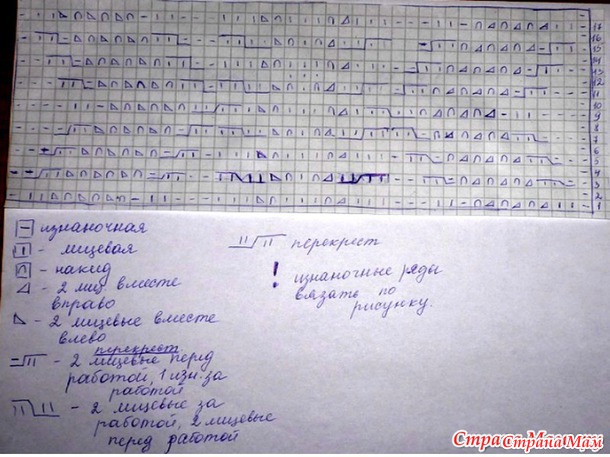 17
16
15
14
13
12
11
10
9
8
7
6
5
4
3
2
1
- изнаночная
- лицевая
- накид
- 2 лиц вместе
вправо
- 2 лицевые вместе
влево
перекрест
- 2 лицевые перед
работой, 1 изн. за
работой
- 2 лицевые за
работой, 2 лицевые
перед работой
перекрест
! изнаночные ряды
вязать по
рисунку.
СтранаМам